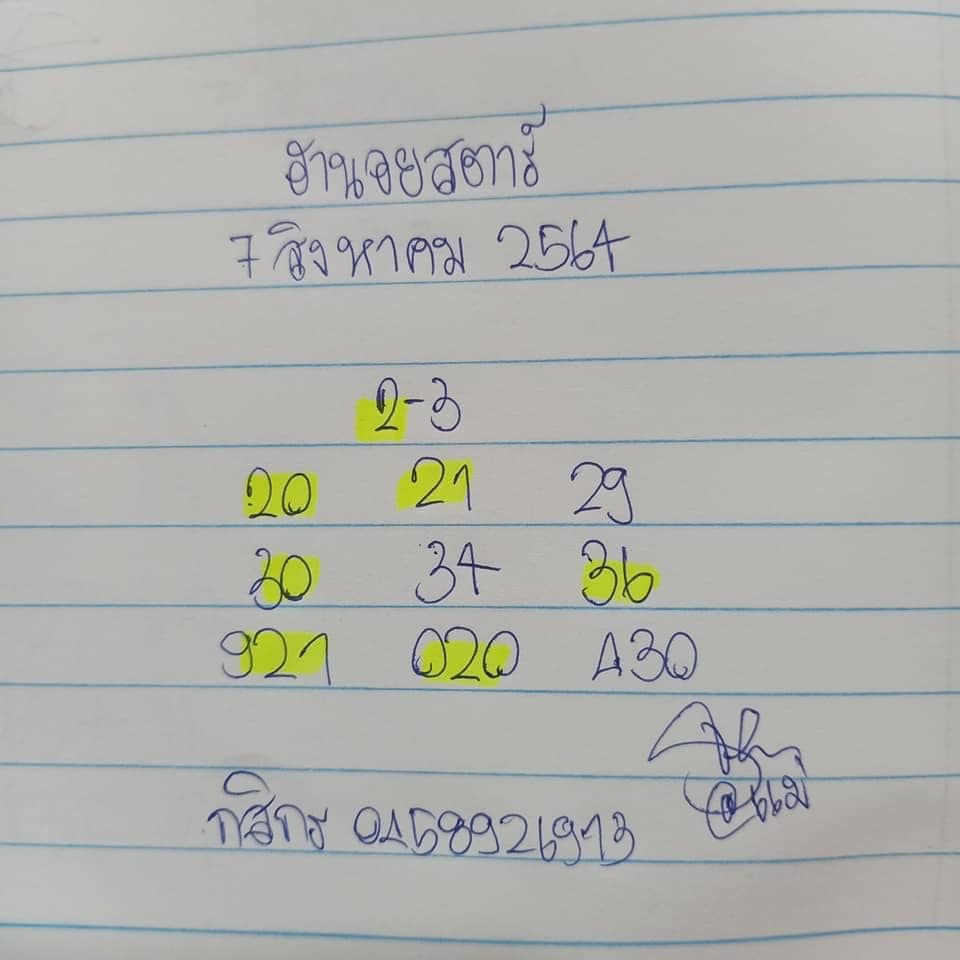 ฮานอยสตาร์
7 สิงหาคม 2564
2-3
20 21 29
30 34 36
921 020 430
กสิกร 0458926973
@แม่